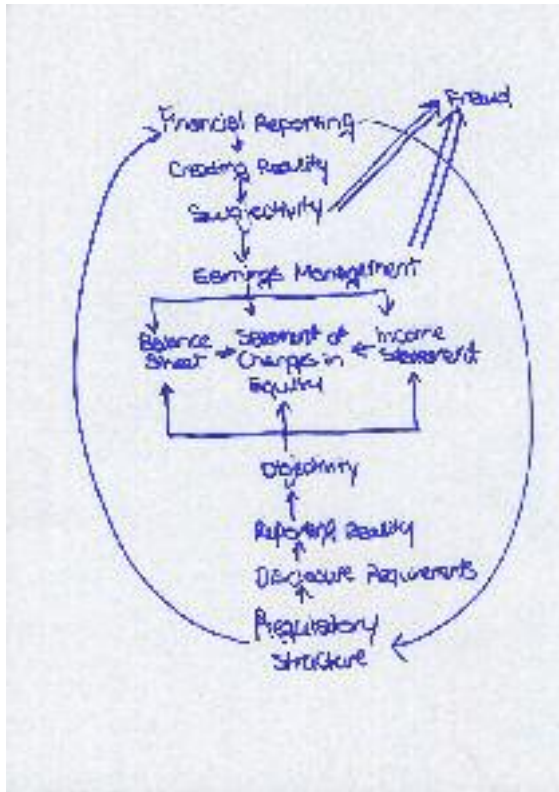 Fraud
Financial Reporting
Creating Reality
Subjectivity
Earnings Management
Balance
Sheet
Statement of
Changes in
Equity
Income
Statement
Objectivity
Reporting Reality
Disclosure Requirements
Regulatory
Structure